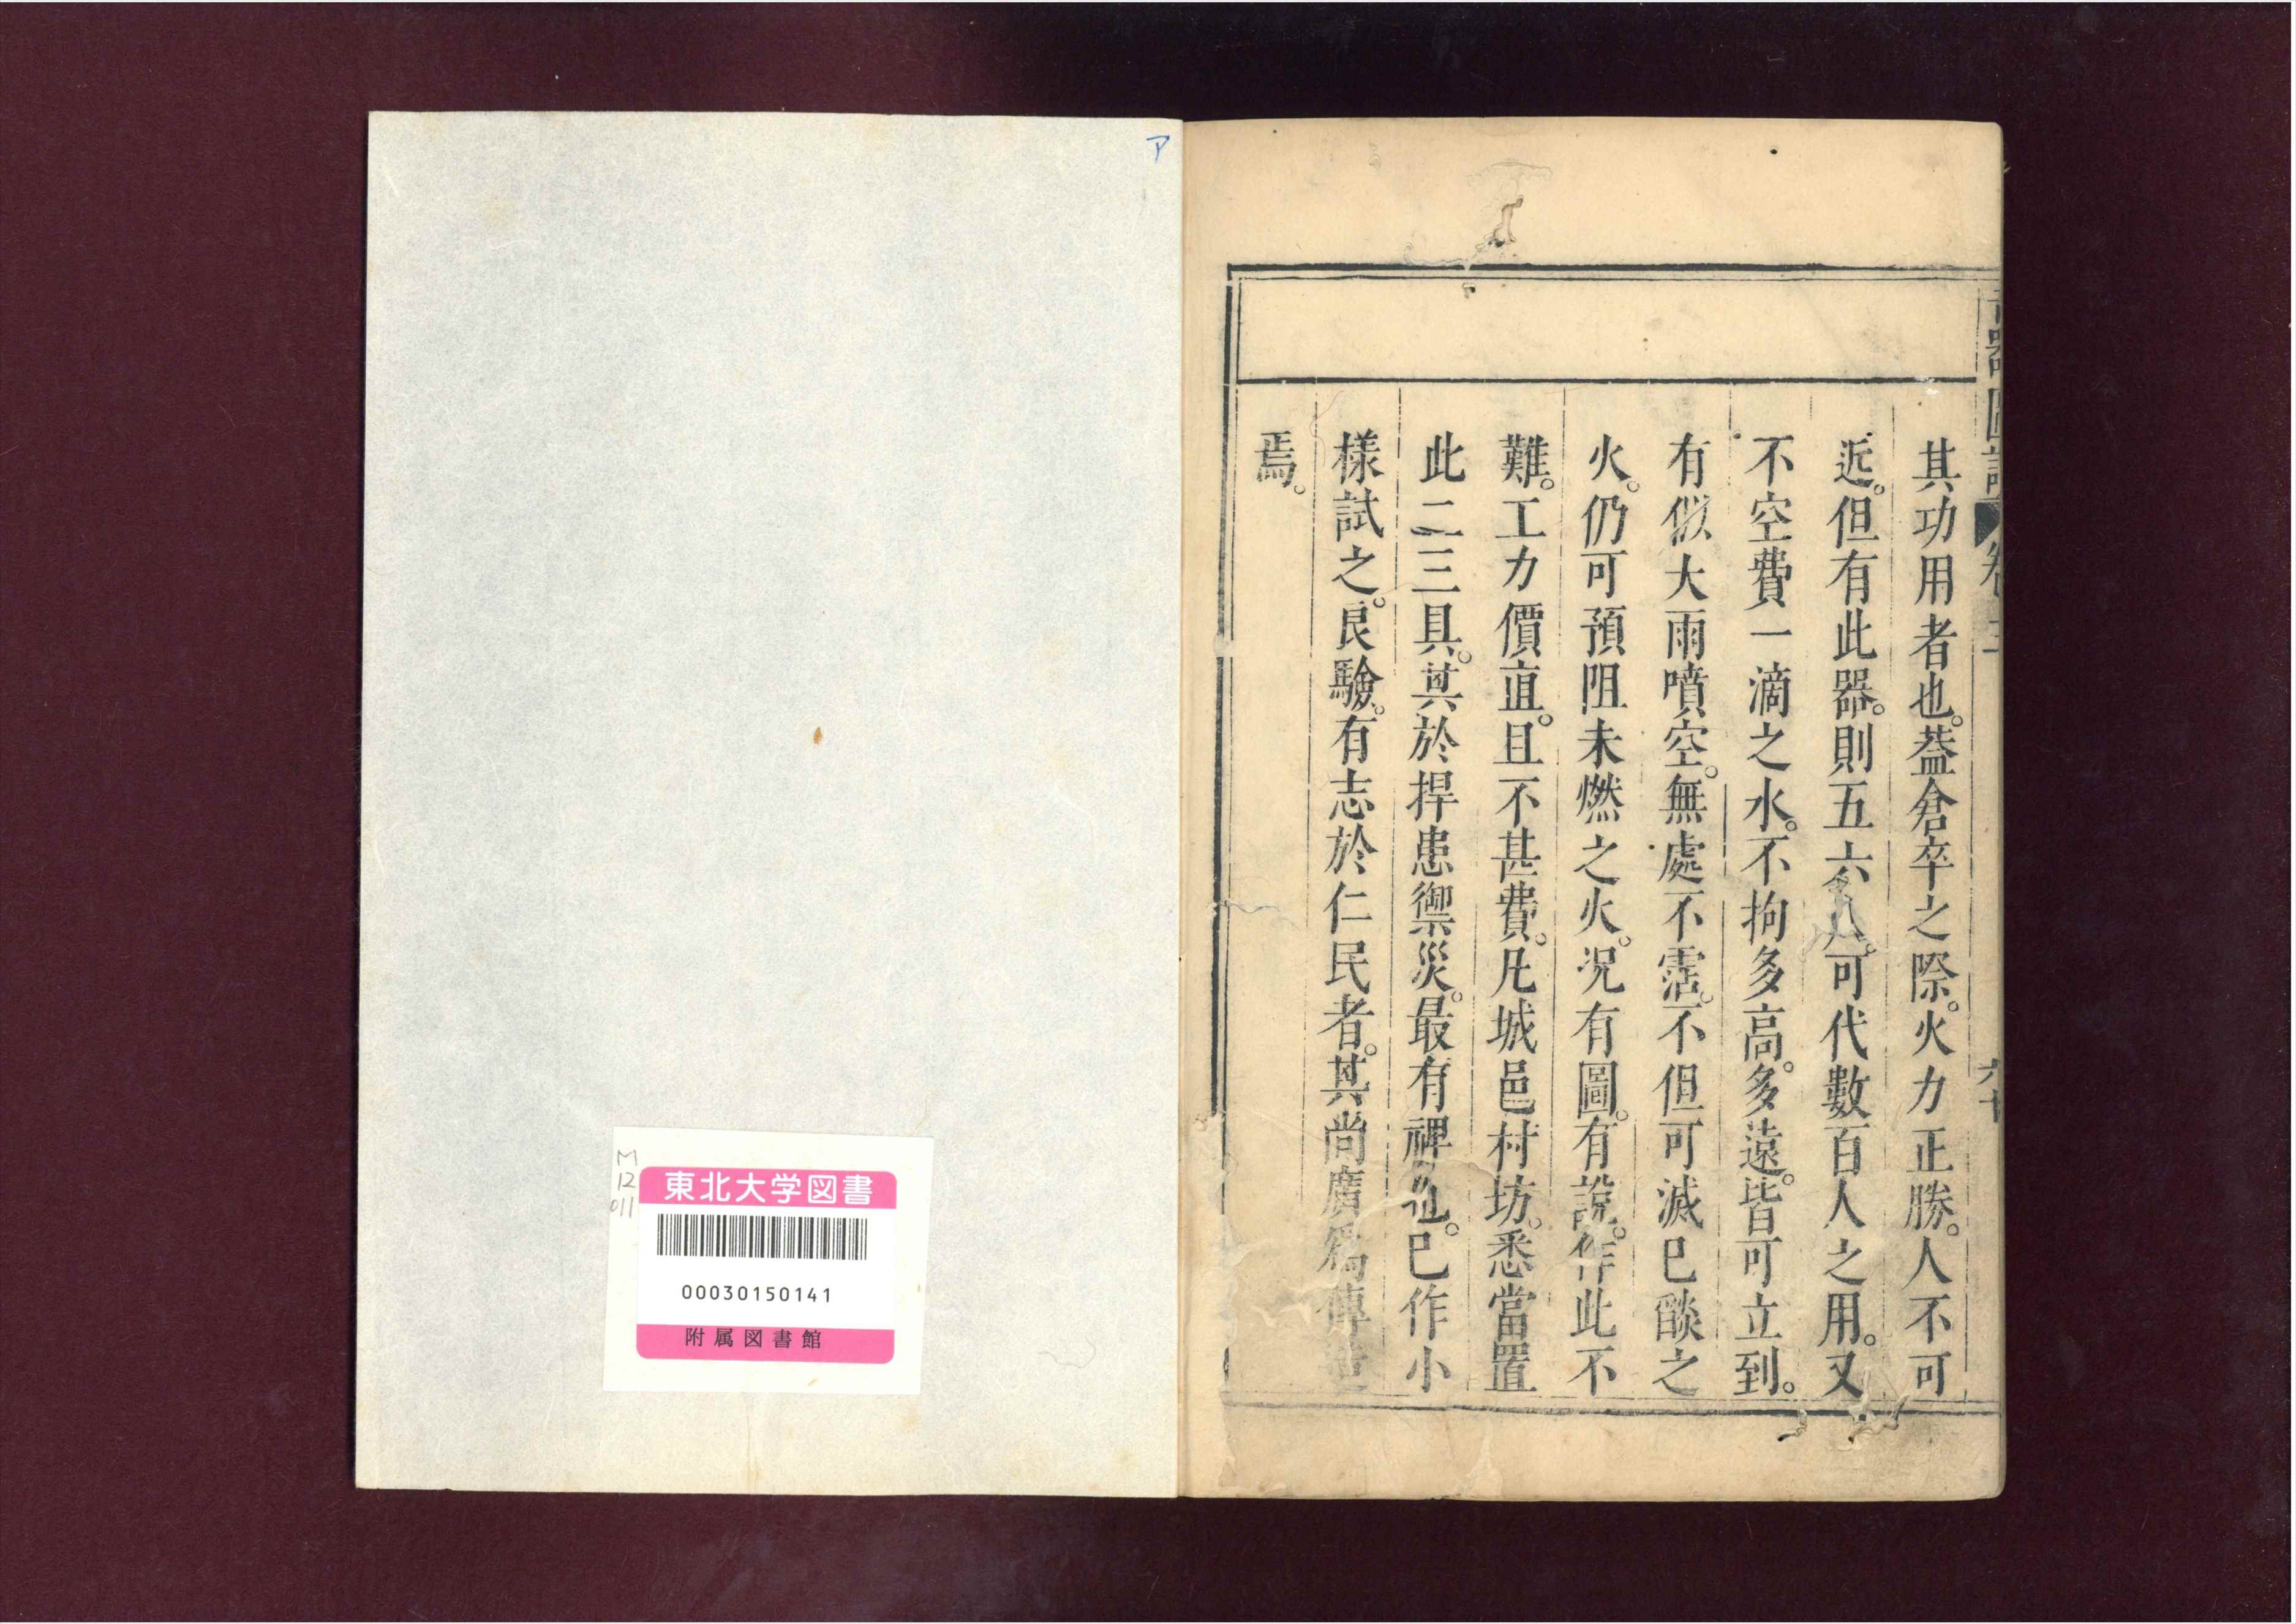 器圖說 卷三 六十
其功用者也。葢倉卒之際。火力正勝。人不可
近。但有此器。則五六人。可代數百人之用。又
不空費一滴之水。不拘多高。多遠。皆可立到。
有似大雨噴空。無處不霑。不但可滅已燄之
火。仍可預阻未燃之火。况有圖。有說。作此不
難。工力價直。且不甚費。凡城邑村坊。悉當置
此二三具。其於捍患禦災。最有裨也。已作小
樣試之。良驗。有志於仁民者。其尚廣爲傳造
焉。
ア
M
12
011
東北大学図書
00030150141
附属図書館